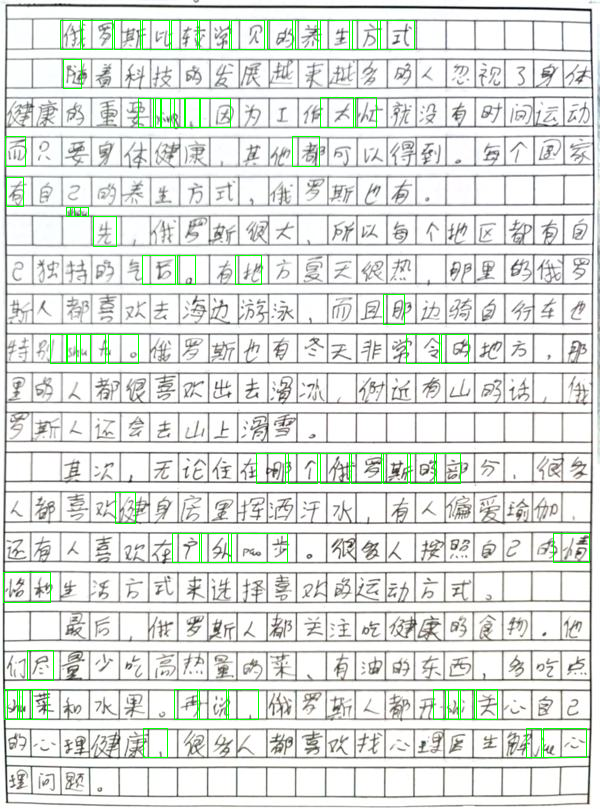 俄罗斯比较常见的养生方式
随着科技的发展越来越多的人忽视了身体
健康的重要xing，因为工作太忙就没有时间运动
而只要身体健康，其他都可以得到。每个国家
有自己的养生方式，俄罗斯也有。
shǒu
先，俄罗斯很大，所以每个地区都有自
己独特的气后。有地方夏天很热，那里的俄罗
斯人都喜欢去海边游泳，而且那边骑自行车也
特别shu fu。俄罗斯也有冬天非常令的地方，那
里的人都很喜欢出去滑冰，附近有山的话，俄
罗斯人还会去山上滑雪。
其次，无论住在哪个俄罗斯的部分，很多
人都喜欢健身房里挥洒汗水，有人偏爱瑜伽，
还有人喜欢在户外pao步。很多人按照自己的情
恪和生活方式来选择喜欢的运动方式。
最后，俄罗斯人都关注吃健康的食物。他
们尽量少吃高热量的菜、有油的东西，多吃点
shu菜和水果。再说，俄罗斯人都开shi关心自己
的心理健康，很多人都喜欢找心理医生解jue心
理问题。